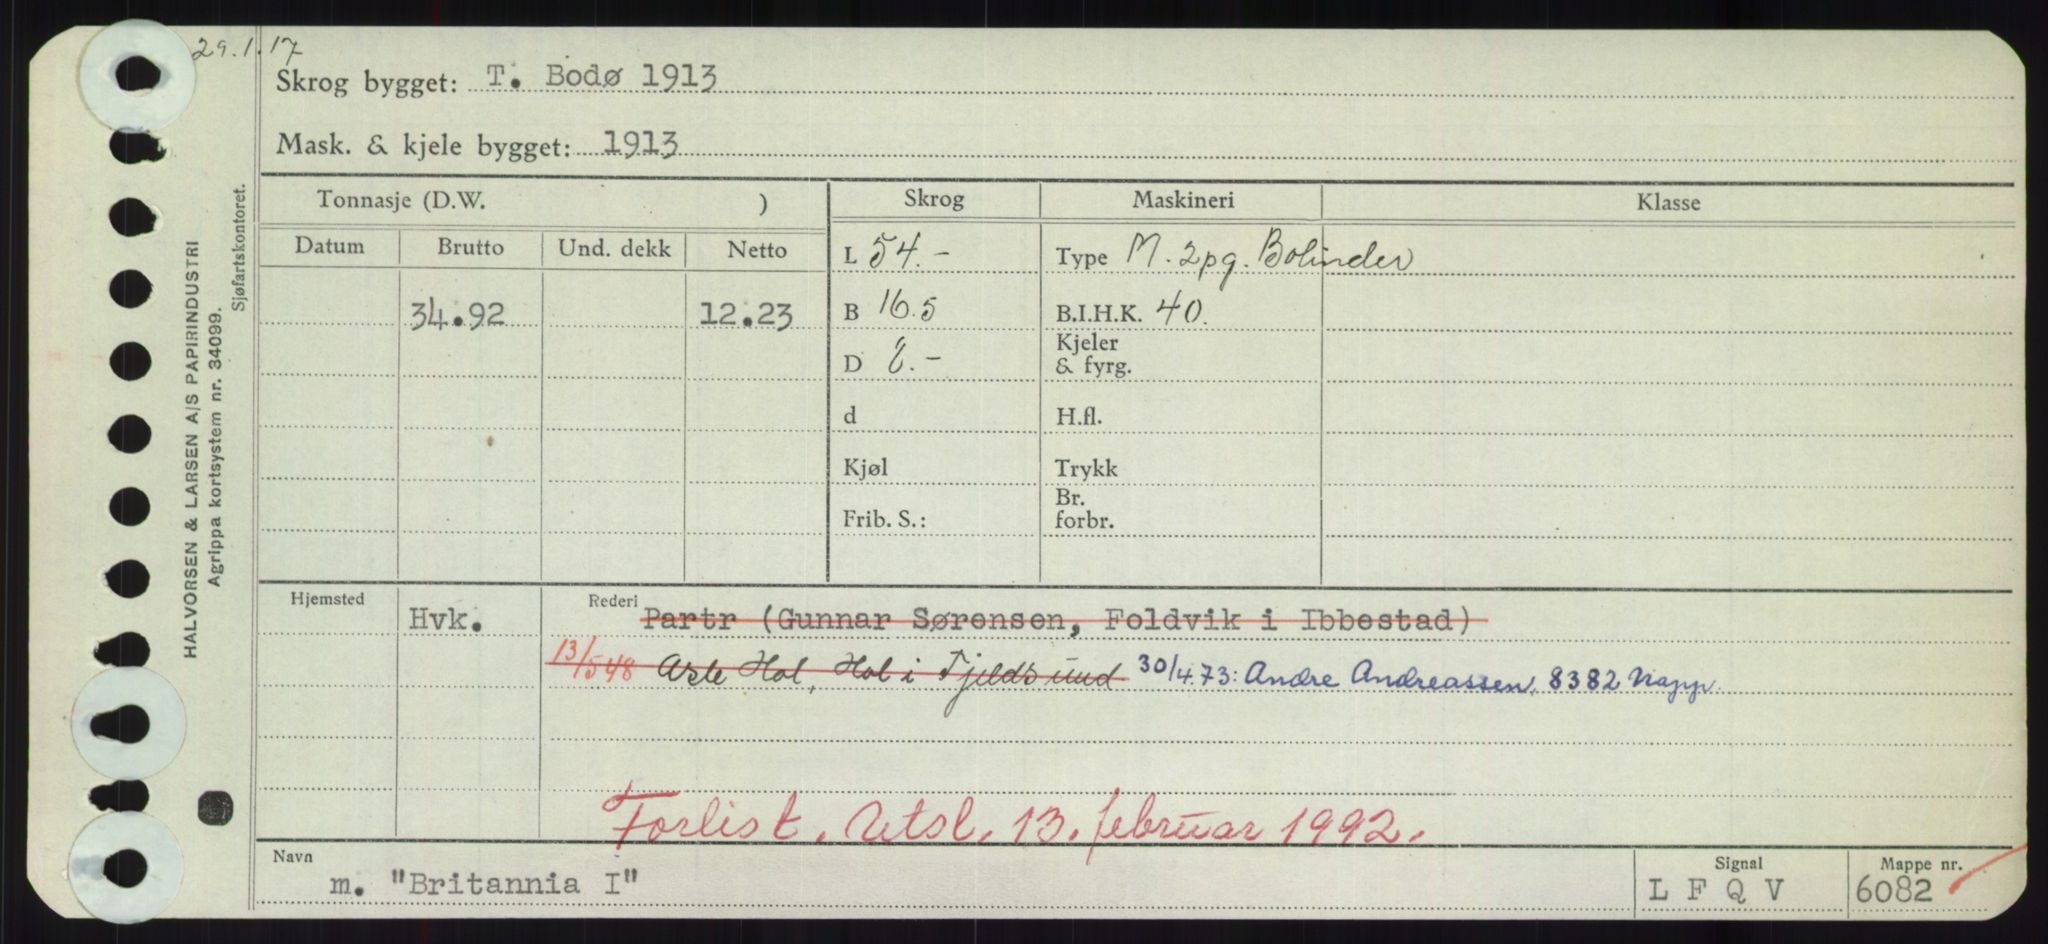 29.1.17
Skrog bygget: T. Bodø 1913
Mask. & kjele bygget: 1913
HALVORSEN & LARSEN A/S PAPIRINDUSTRI
Agrippa kortsystem nr. 34099.
Sjøfartskontoret.
Tonnasje (D.W. ) Skrog Maskineri Klasse
Datum Brutto Und. dekk Netto
L 54.- Type M. 2pg. Bolinder
34.92 12.23 B 16.5 B.I.H.K. 40.
D 8.- Kjeler & fyrg.
d H.fl.
Kjøl Trykk
Frib. S.: Br. forbr.
Hjemsted Rederi
Hvk. Partr (Gunnar Sørensen, Foldvik i Ibbestad)
13/5 48 Hol, Hol i Fjeldsund 30/4.73: Andre Andreassen, 8382 Napp.
Forlist. Utsl. 13. februar 1992.
Navn Signal Mappe nr.
m. "Britannia I" L F Q V 6082